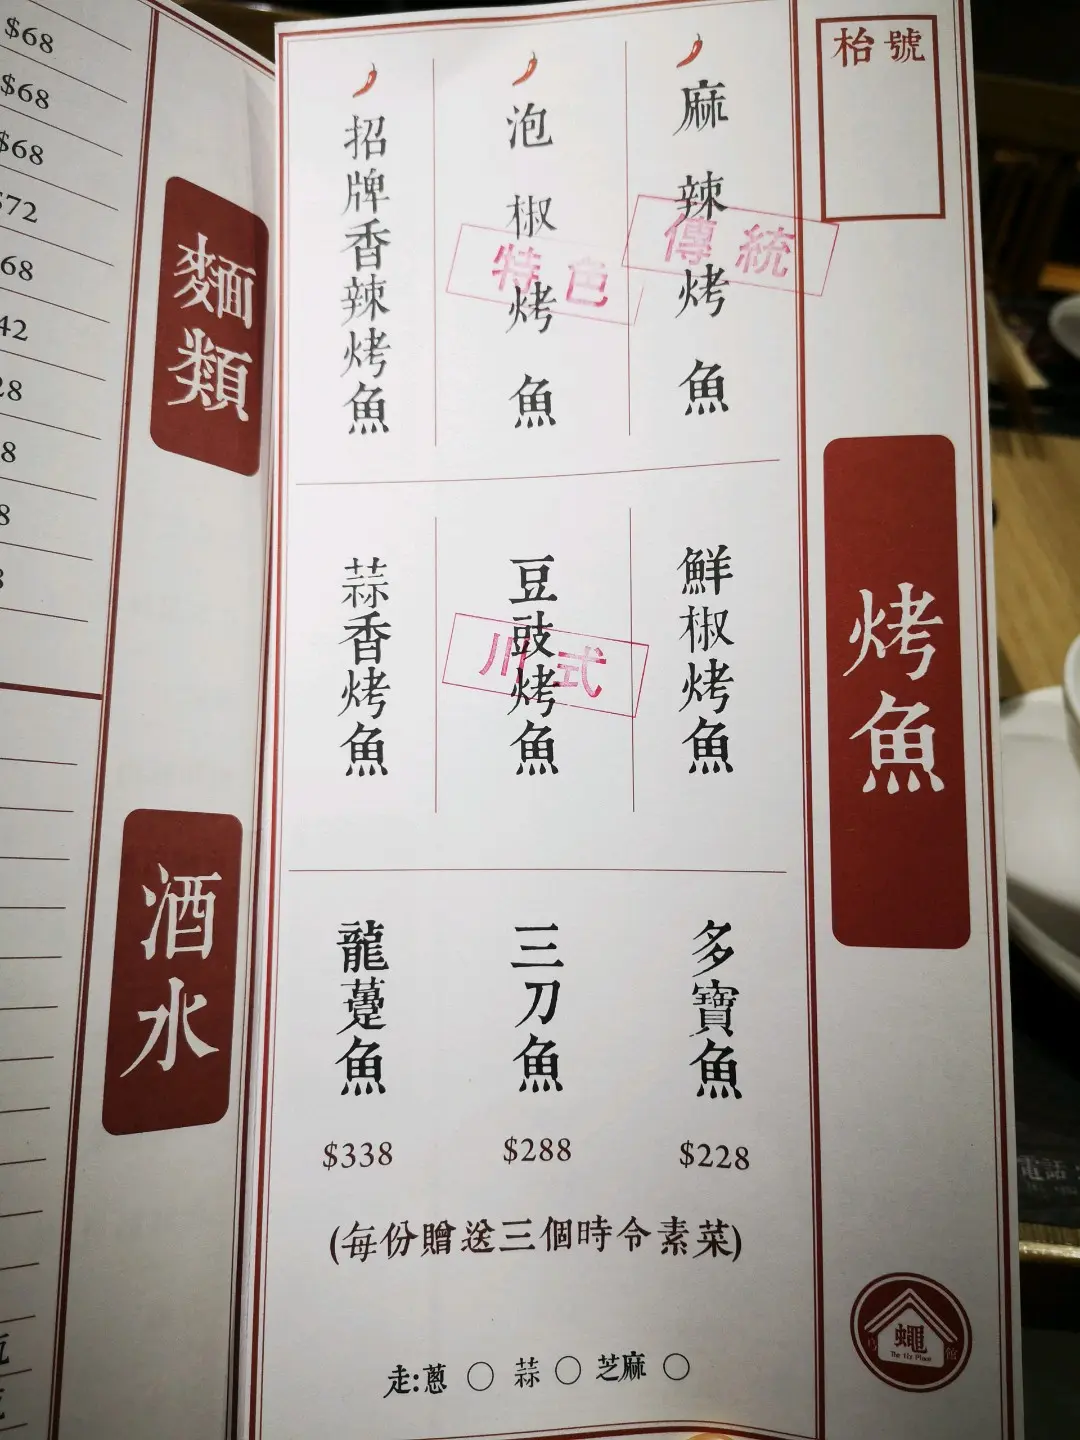 枱號
烤魚
麻辣烤魚
傳統
泡椒烤魚
特色
招牌香辣烤魚
鮮椒烤魚
豆豉烤魚
川式
蒜香烤魚
多寶魚
$228
三刀魚
$288
龍躉魚
$338
(每份贈送三個時令素菜)
走:蔥 ○ 蒜 ○ 芝麻 ○
蠅
館
電話
麵類
酒水
$68
$68
$68
$72